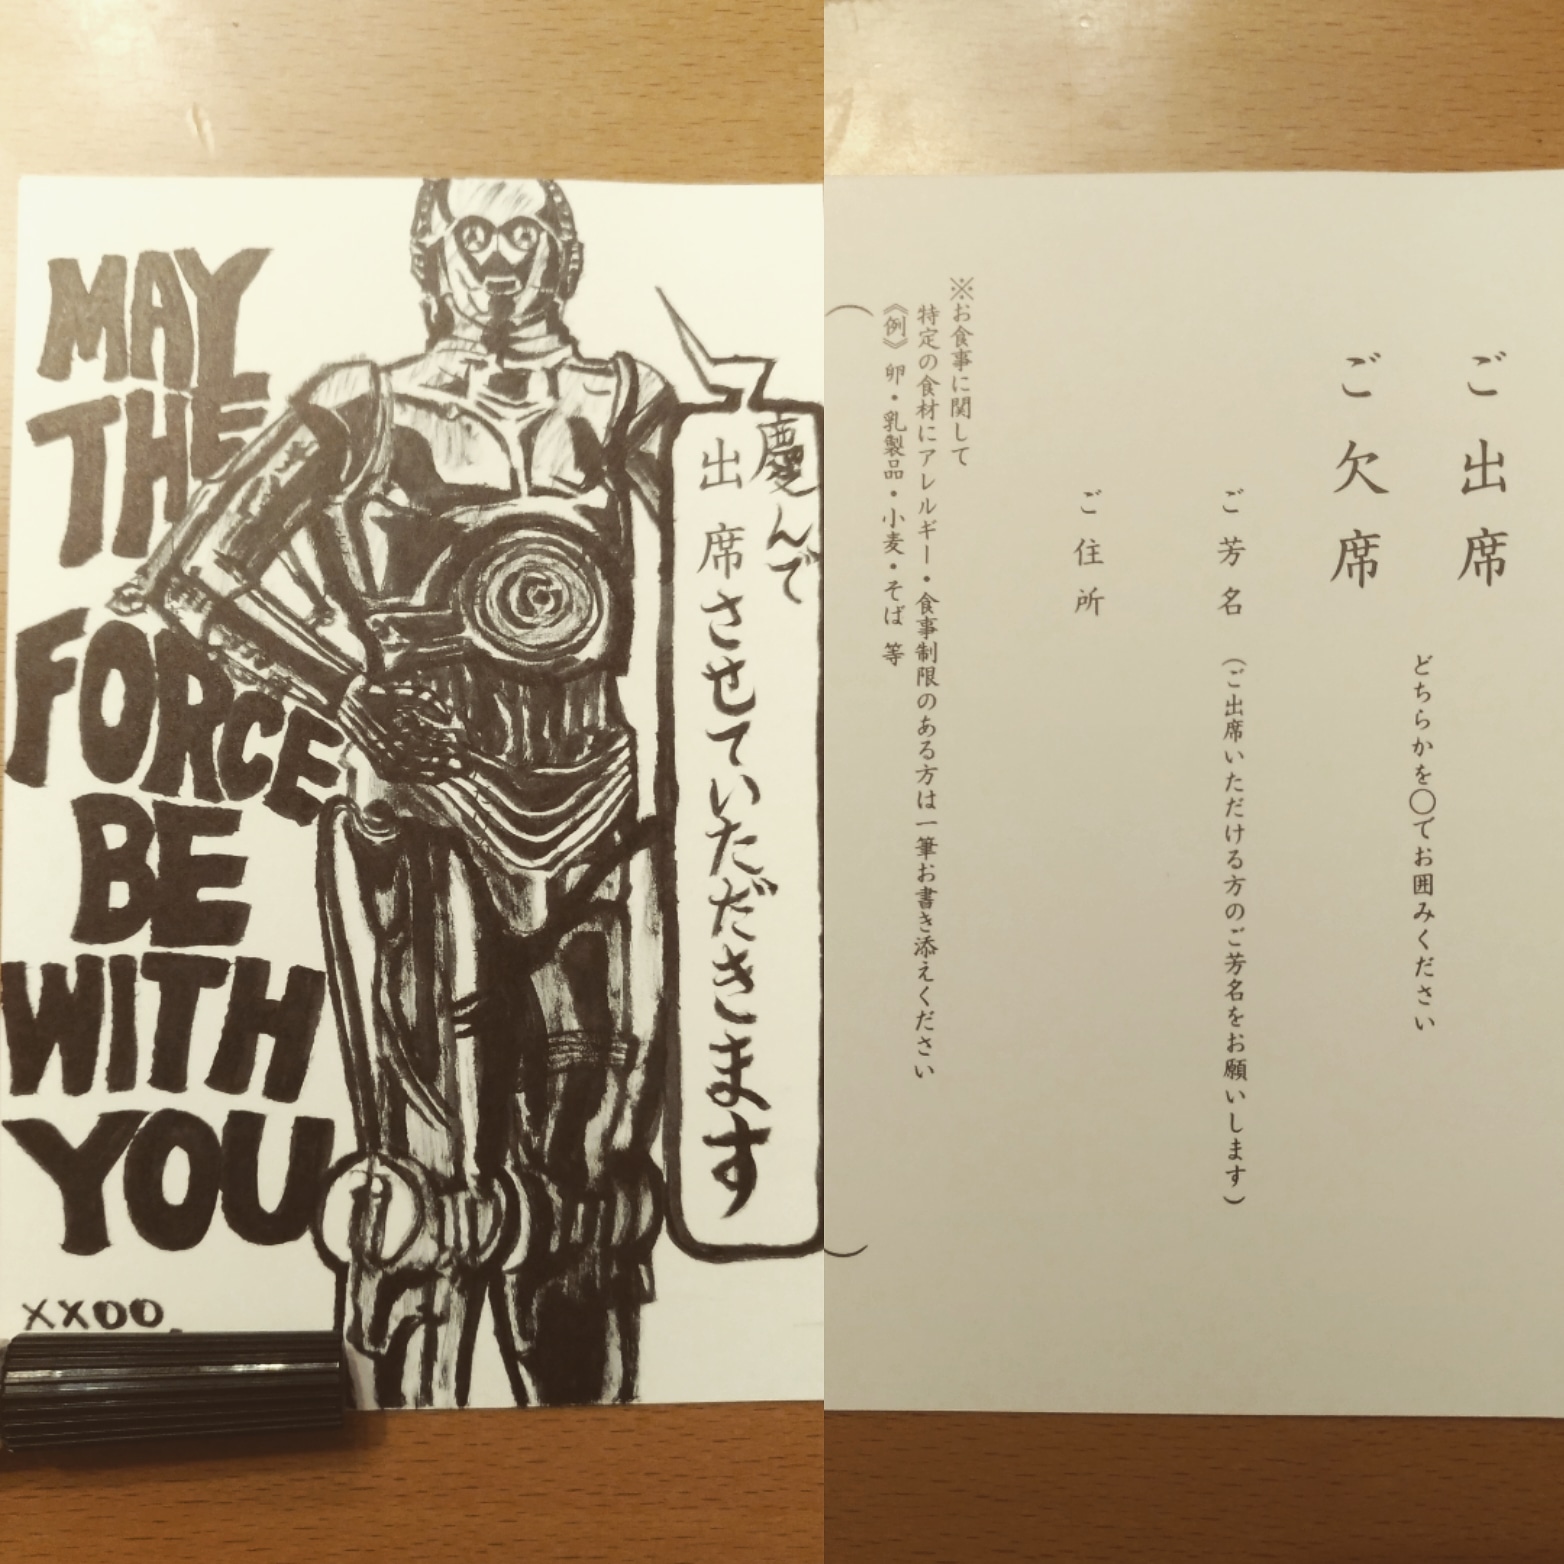 MAY
THE
FORCE
BE
WITH
YOU
XXOO
慶んで
出席させていただきます
ご出席
どちらかを〇でお囲みください
ご欠席
ご芳名（ご出席いただける方のご芳名をお願いします）
ご住所
※お食事に関して
特定の食材にアレルギー・食事制限のある方は一筆お書き添えください
《例》卵・乳製品・小麦・そば 等